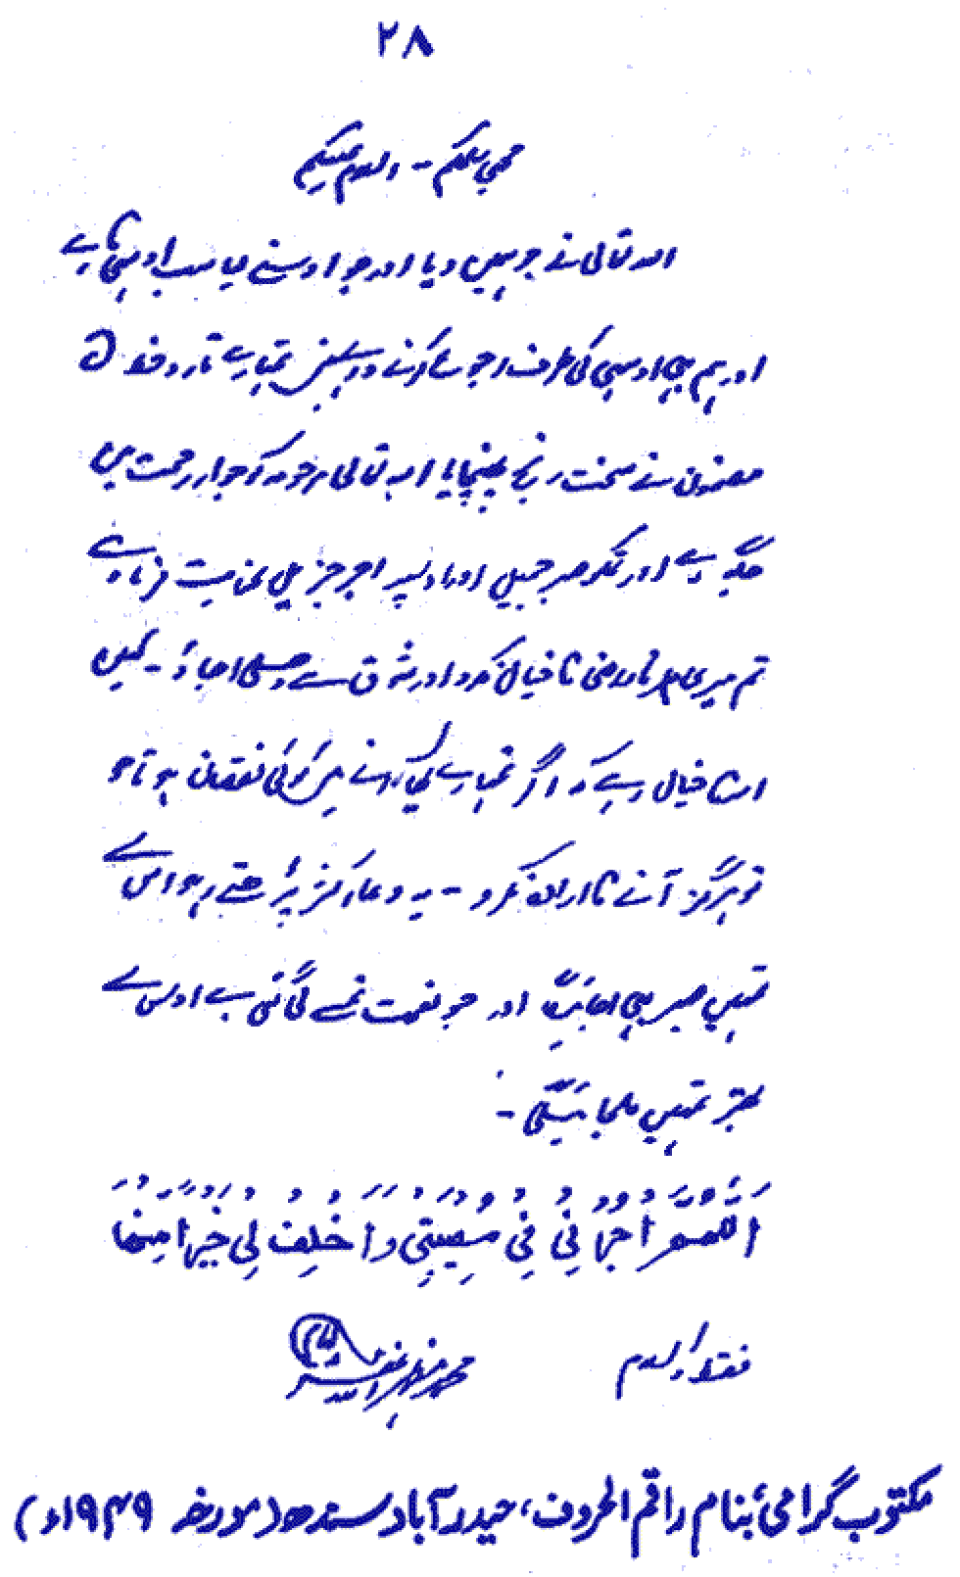 ۲۸
محبی سلمکم - السلام علیکم
اللہ تعالی نے جو ہمیں دیا اور جو اوسنے لیا سب اوسیکا ہے
اور ہم بھی اوسی کی طرف رجوع کرنے والے ہیں تمہارے تار و خط کے
مضمون نے سخت رنج پہنچایا اللہ تعالی مرحومہ کو جوار رحمت میں
جگہ دے اور تمکو صبر جمیل اور اوسپر اجر جزیل عنایت فرمائے
تم میری ناراضی کا خیال نکرو اور شوق سے چلے آجاؤ - لیکن
اتنا خیال رہے کہ اگر تمہارے یہاں آنے میں کوئی نقصان ہوتا ہو
تو ہرگز آنے کا ارادہ نکرو - یہ دعا اکثر پڑھتے رہو اس سے
تمہیں صبر بھی آجائیگا اور جو نعمت تمسے لی گئی ہے اوس سے
بہتر تمہیں ملجائیگی -
اَللّٰهُمَّ اَجِرْنِیْ فِیْ مُصِیْبَتِیْ وَاَخْلِفْ لِیْ خَیْرًا مِّنْهَا
فقط والسلام
محمد مظہر اللہ غفرلہ
مکتوب گرامی بنام راقم الحروف، حیدرآباد سندھ (مورخہ ۱۹۴۹ء)